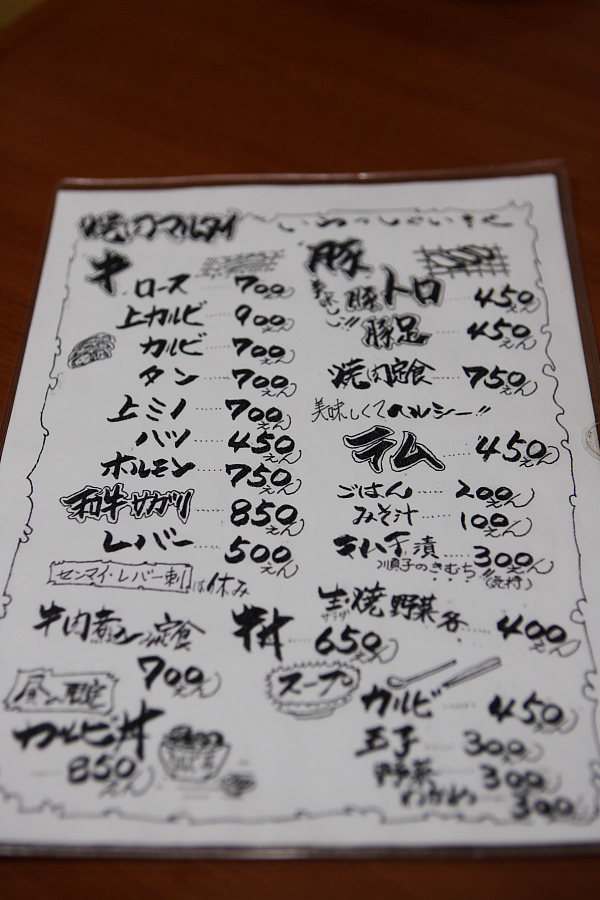 焼肉マルタイ
いらっしゃいませ
牛
ロース 700えん
上カルビ 900えん
カルビ 700えん
タン 700えん
上ミノ 700えん
ハツ 450えん
ホルモン 750えん
和牛サガリ 850えん
レバー 500えん
センマイ・レバー刺は休み
牛肉煮込定食 700えん
昼の限定
カルビ丼 850えん
豚
豚トロ 450えん
豚足 450えん
焼肉定食 750えん
美味しくてヘルシー!!
ラム 450えん
ごはん 200えん
みそ汁 100えん
キムチ漬 300えん
川頁子のきむち
生サラダ 焼野菜各 400えん
牛丼 650えん
スープ
カルビ 450えん
玉子 300えん
野菜 300えん
わかめ 300